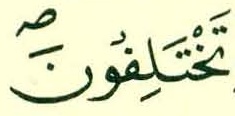 تَخْتَلِفُونَ ۖ